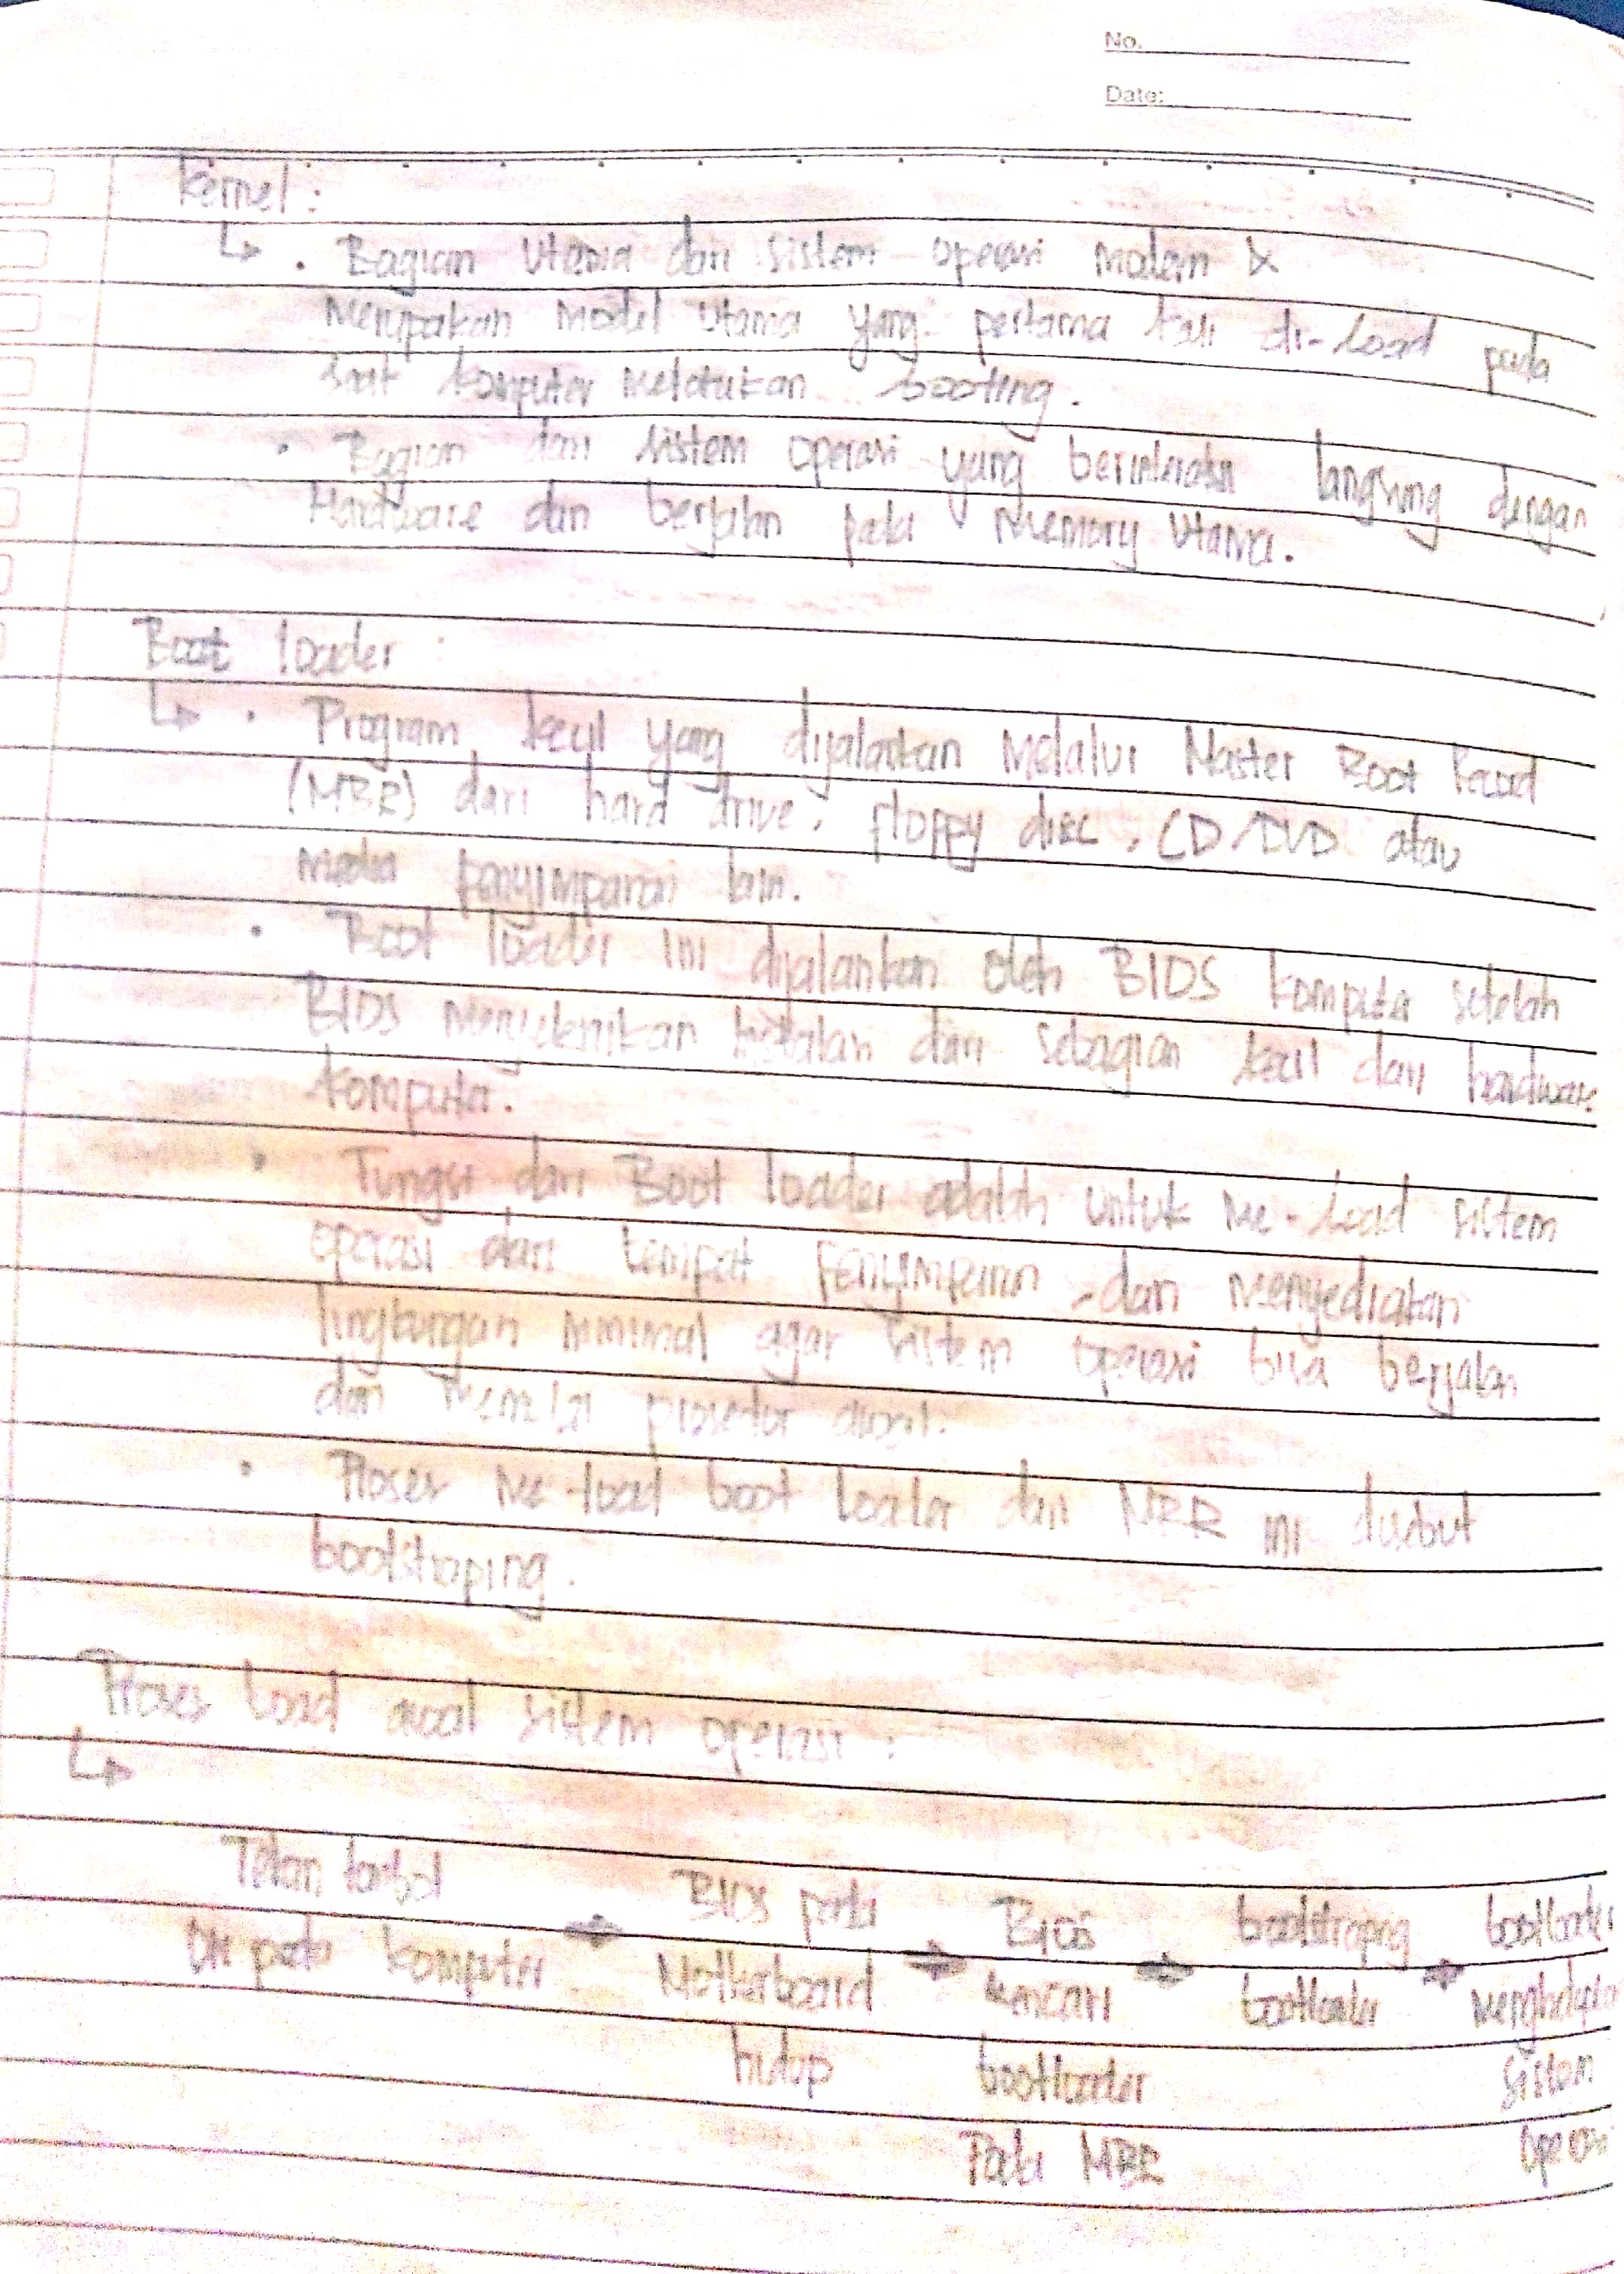 No.
Date:
Kernel :
↳ • Bagian Utama dari sistem operasi modern &
Merupakan Model Utama yang pertama kali di-load pada
saat komputer melakukan booting.
• Bagian dari sistem operasi yang berinteraksi langsung dengan
Hardware dan berjalan pada memory utama.
Boot loader :
↳ • Program kecil yang dijalankan melalui Master Boot Record
(MBR) dari hard drive, floppy disc, CD/DVD atau
media penyimpanan lain.
• Boot loader ini dijalankan oleh BIOS komputer setelah
BIOS menyelesaikan dari sebagian kecil dari hardware
komputer.
• Fungsi dari Boot loader adalah untuk me-load sistem
operasi dari tempat penyimpanan, dan menyediakan
lingkungan minimal agar sistem operasi bisa berjalan
dan prosedur awal.
• Proses me-load boot loader dari MBR ini disebut
bootstraping.
Proses Load awal sistem operasi :
↳
Tekan tombol BIOS pada BIOS bootstraping bootloader
ON pada komputer → Motherboard → mencari → bootloader → menghidupkan
hidup bootloader sistem
Pada MBR operasi